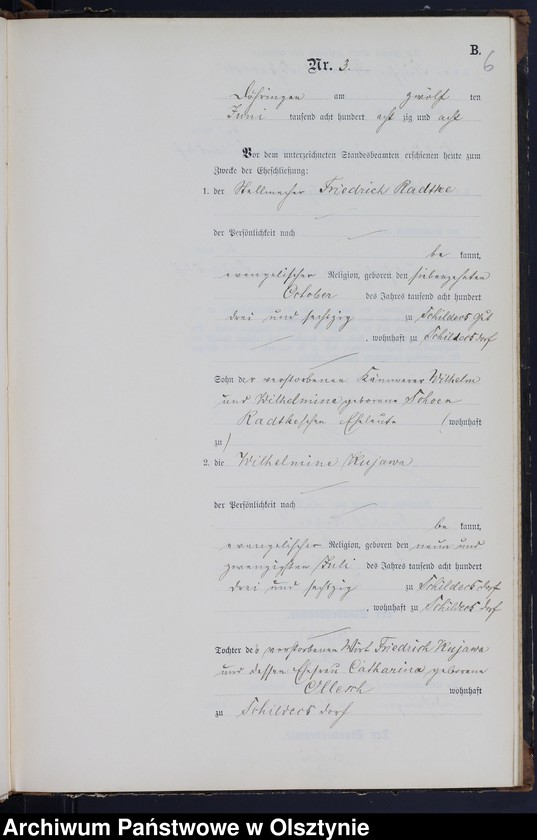 B.
6
Nr. 3.
Döhringen am zwölf ten
Juni tausend acht hundert acht zig und acht
Vor dem unterzeichneten Standesbeamten erschienen heute zum
Zwecke der Eheschließung:
1. der Stellmacher Friedrich Radtke
der Persönlichkeit nach
be kannt,
evangelischer Religion, geboren den siebenzehnten
October des Jahres tausend acht hundert
drei und sechzig zu Schilders Gut
, wohnhaft zu Schildersdorf
Sohn der verstorbenen Kämmerer Wilhelm
und Wilhelmine geborene Schoen
Radtkeschen Eheleute (wohnhaft
zu)
2. die Wilhelmine Kujawa
der Persönlichkeit nach
be kannt,
evangelischer Religion, geboren den neun und
zwanzigsten Juli des Jahres tausend acht hundert
drei und sechtzig zu Schildersdorf
, wohnhaft zu Schildersdorf
Tochter des verstorbenen Wirt Friedrich Kujawa
und dessen Ehefrau Catharina geborene
Ollesch wohnhaft
zu Schildersdorf
Archiwum Państwowe w Olsztynie